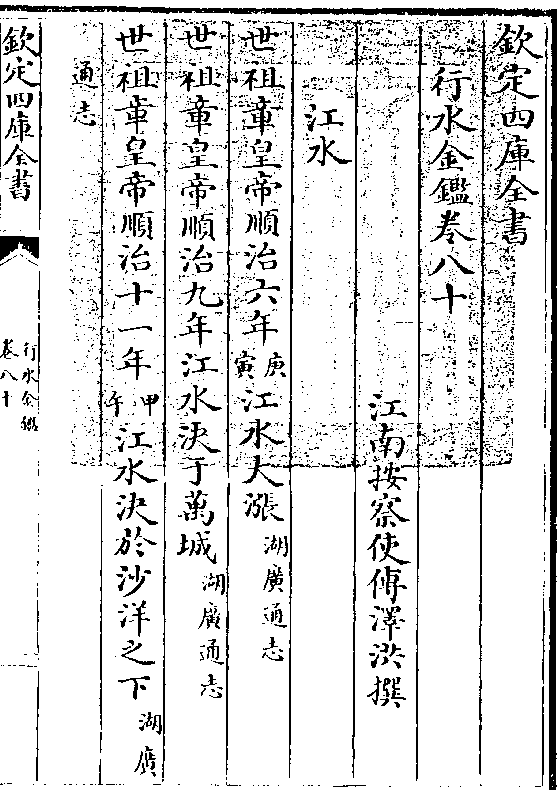 欽定四庫全書
行水金鑑卷八十
江南按察使傅澤洪撰
江水
世祖章皇帝順治六年庚寅江水大漲湖廣通志
世祖章皇帝順治九年江水決于萬城湖廣通志
世祖章皇帝順治十一年甲午江水決於沙洋之下湖廣
通志
欽定四庫全書
行水金鑑
卷八十